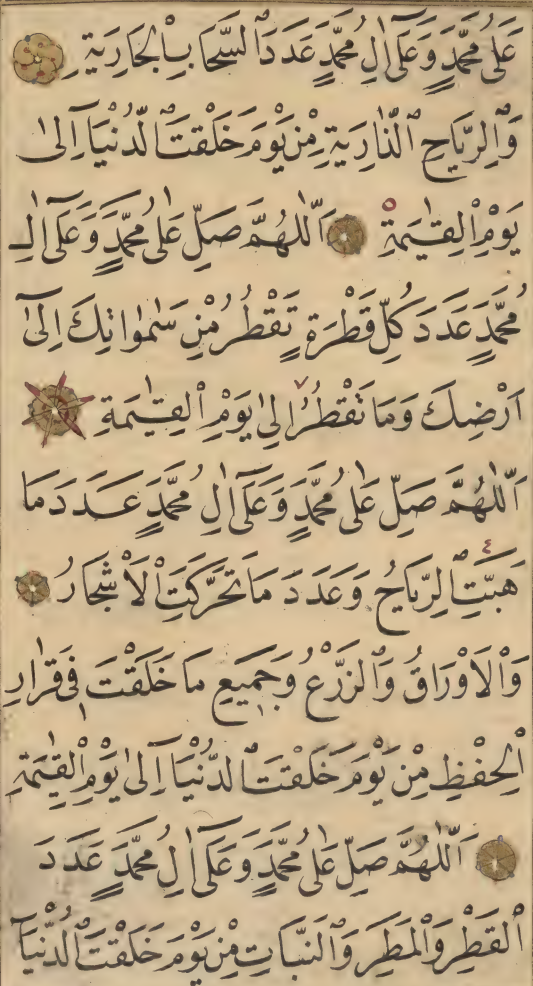 عَلٰى مُحَمَّدٍ وَعَلٰٓى اٰلِ مُحَمَّدٍ عَدَدَ السَّحَابِ الْجَارِيَةِ
وَالرِّيَاحِ الذَّارِيَةِ مِنْ يَوْمَ خَلَقْتَ الدُّنْيَآ اِلٰى
يَوْمِ الْقِيٰمَةِ اَللّٰهُمَّ صَلِّ عَلٰى مُحَمَّدٍ وَعَلٰٓى اٰلِ
مُحَمَّدٍ عَدَدَ كُلِّ قَطْرَةٍ تَقْطُرُ مِنْ سَمٰوَاتِكَ اِلٰىٓ
اَرْضِكَ وَمَا تَقْطُرُ اِلٰى يَوْمِ الْقِيٰمَةِ
اَللّٰهُمَّ صَلِّ عَلٰى مُحَمَّدٍ وَعَلٰٓى اٰلِ مُحَمَّدٍ عَدَدَ مَا
هَبَّتِ الرِّيَاحُ وَعَدَدَ مَا تَحَرَّكَتِ الْاَشْجَارُ
وَالْاَوْرَاقُ وَالزَّرْعُ وَجَمِيعِ مَا خَلَقْتَ فِى قَرَارِ
الْحِفْظِ مِنْ يَوْمَ خَلَقْتَ الدُّنْيَآ اِلٰى يَوْمِ الْقِيٰمَةِ
اَللّٰهُمَّ صَلِّ عَلٰى مُحَمَّدٍ وَعَلٰٓى اٰلِ مُحَمَّدٍ عَدَدَ
الْقَطْرِ وَالْمَطَرِ وَالنَّبَاتِ مِنْ يَوْمَ خَلَقْتَ الدُّنْيَآ